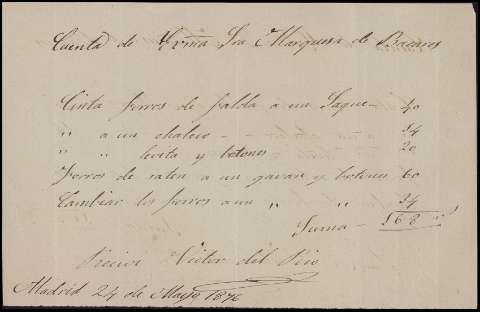 Cuenta de Exma Sra Marquesa de Bacares
Cinta forros de falda a un Saque – 40
" a un chaleco – – 14
" " levita y botones 20
Forros de saten a un gavan y botones 60
Cambiar los forros a un " " 34
Suma – 168
Victor del Rio
Madrid 24 de Mayo 1876